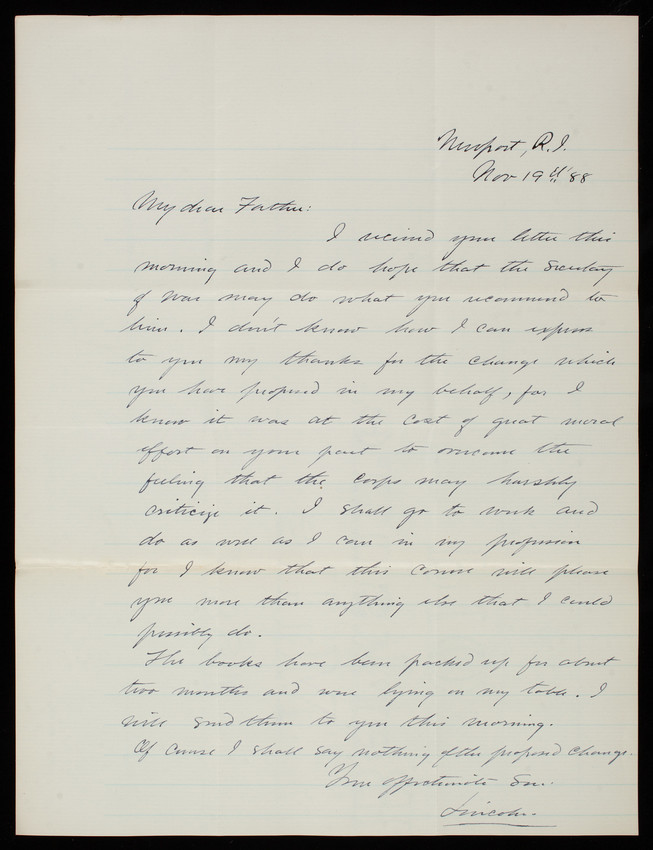 Newport, R.I.
Nov 19th '88
My dear Father:
I received your letter this
morning and I do hope that the Secretary
of War may do what you recommend to
him. I don't know how I can express
to you my thanks for the change which
you have proposed in my behalf, for I
know it was at the cost of great moral
effort on your part to overcome the
feeling that the corps may harshly
criticize it. I shall go to work and
do as well as I can in my profession
for I know that this course will please
you more than anything else that I could
possibly do.
The books have been packed up for about
two months and were lying on my table. I
will send them to you this morning.
Of course I shall say nothing of the proposed change.
Your affectionate Son.
Lincoln.